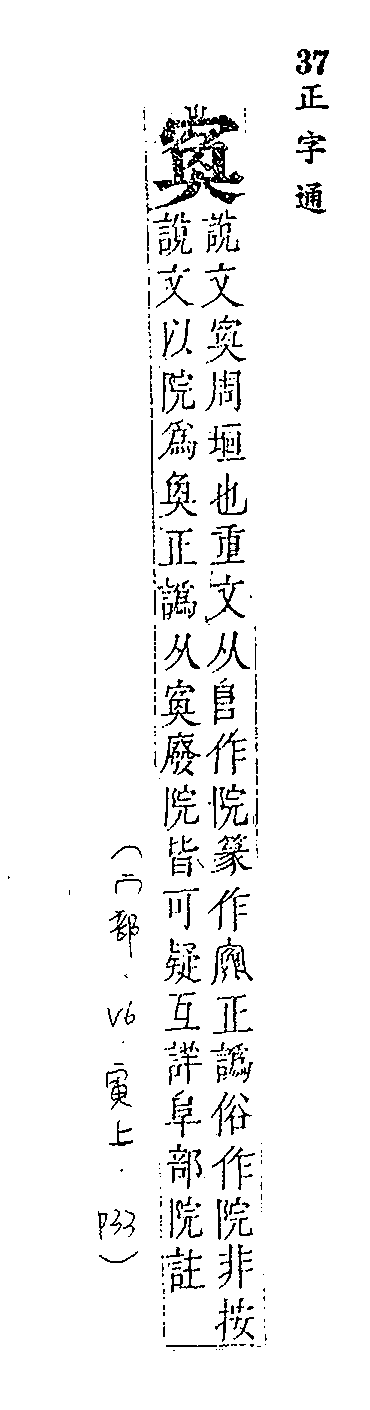 37正字通
寏
說文寏周垣也重文从𨸏作院篆作𡪤正譌俗作院非按
說文以院爲奐正譌从寏廢院皆可疑互詳阜部院註
(宀部.V6.寅上.P33)